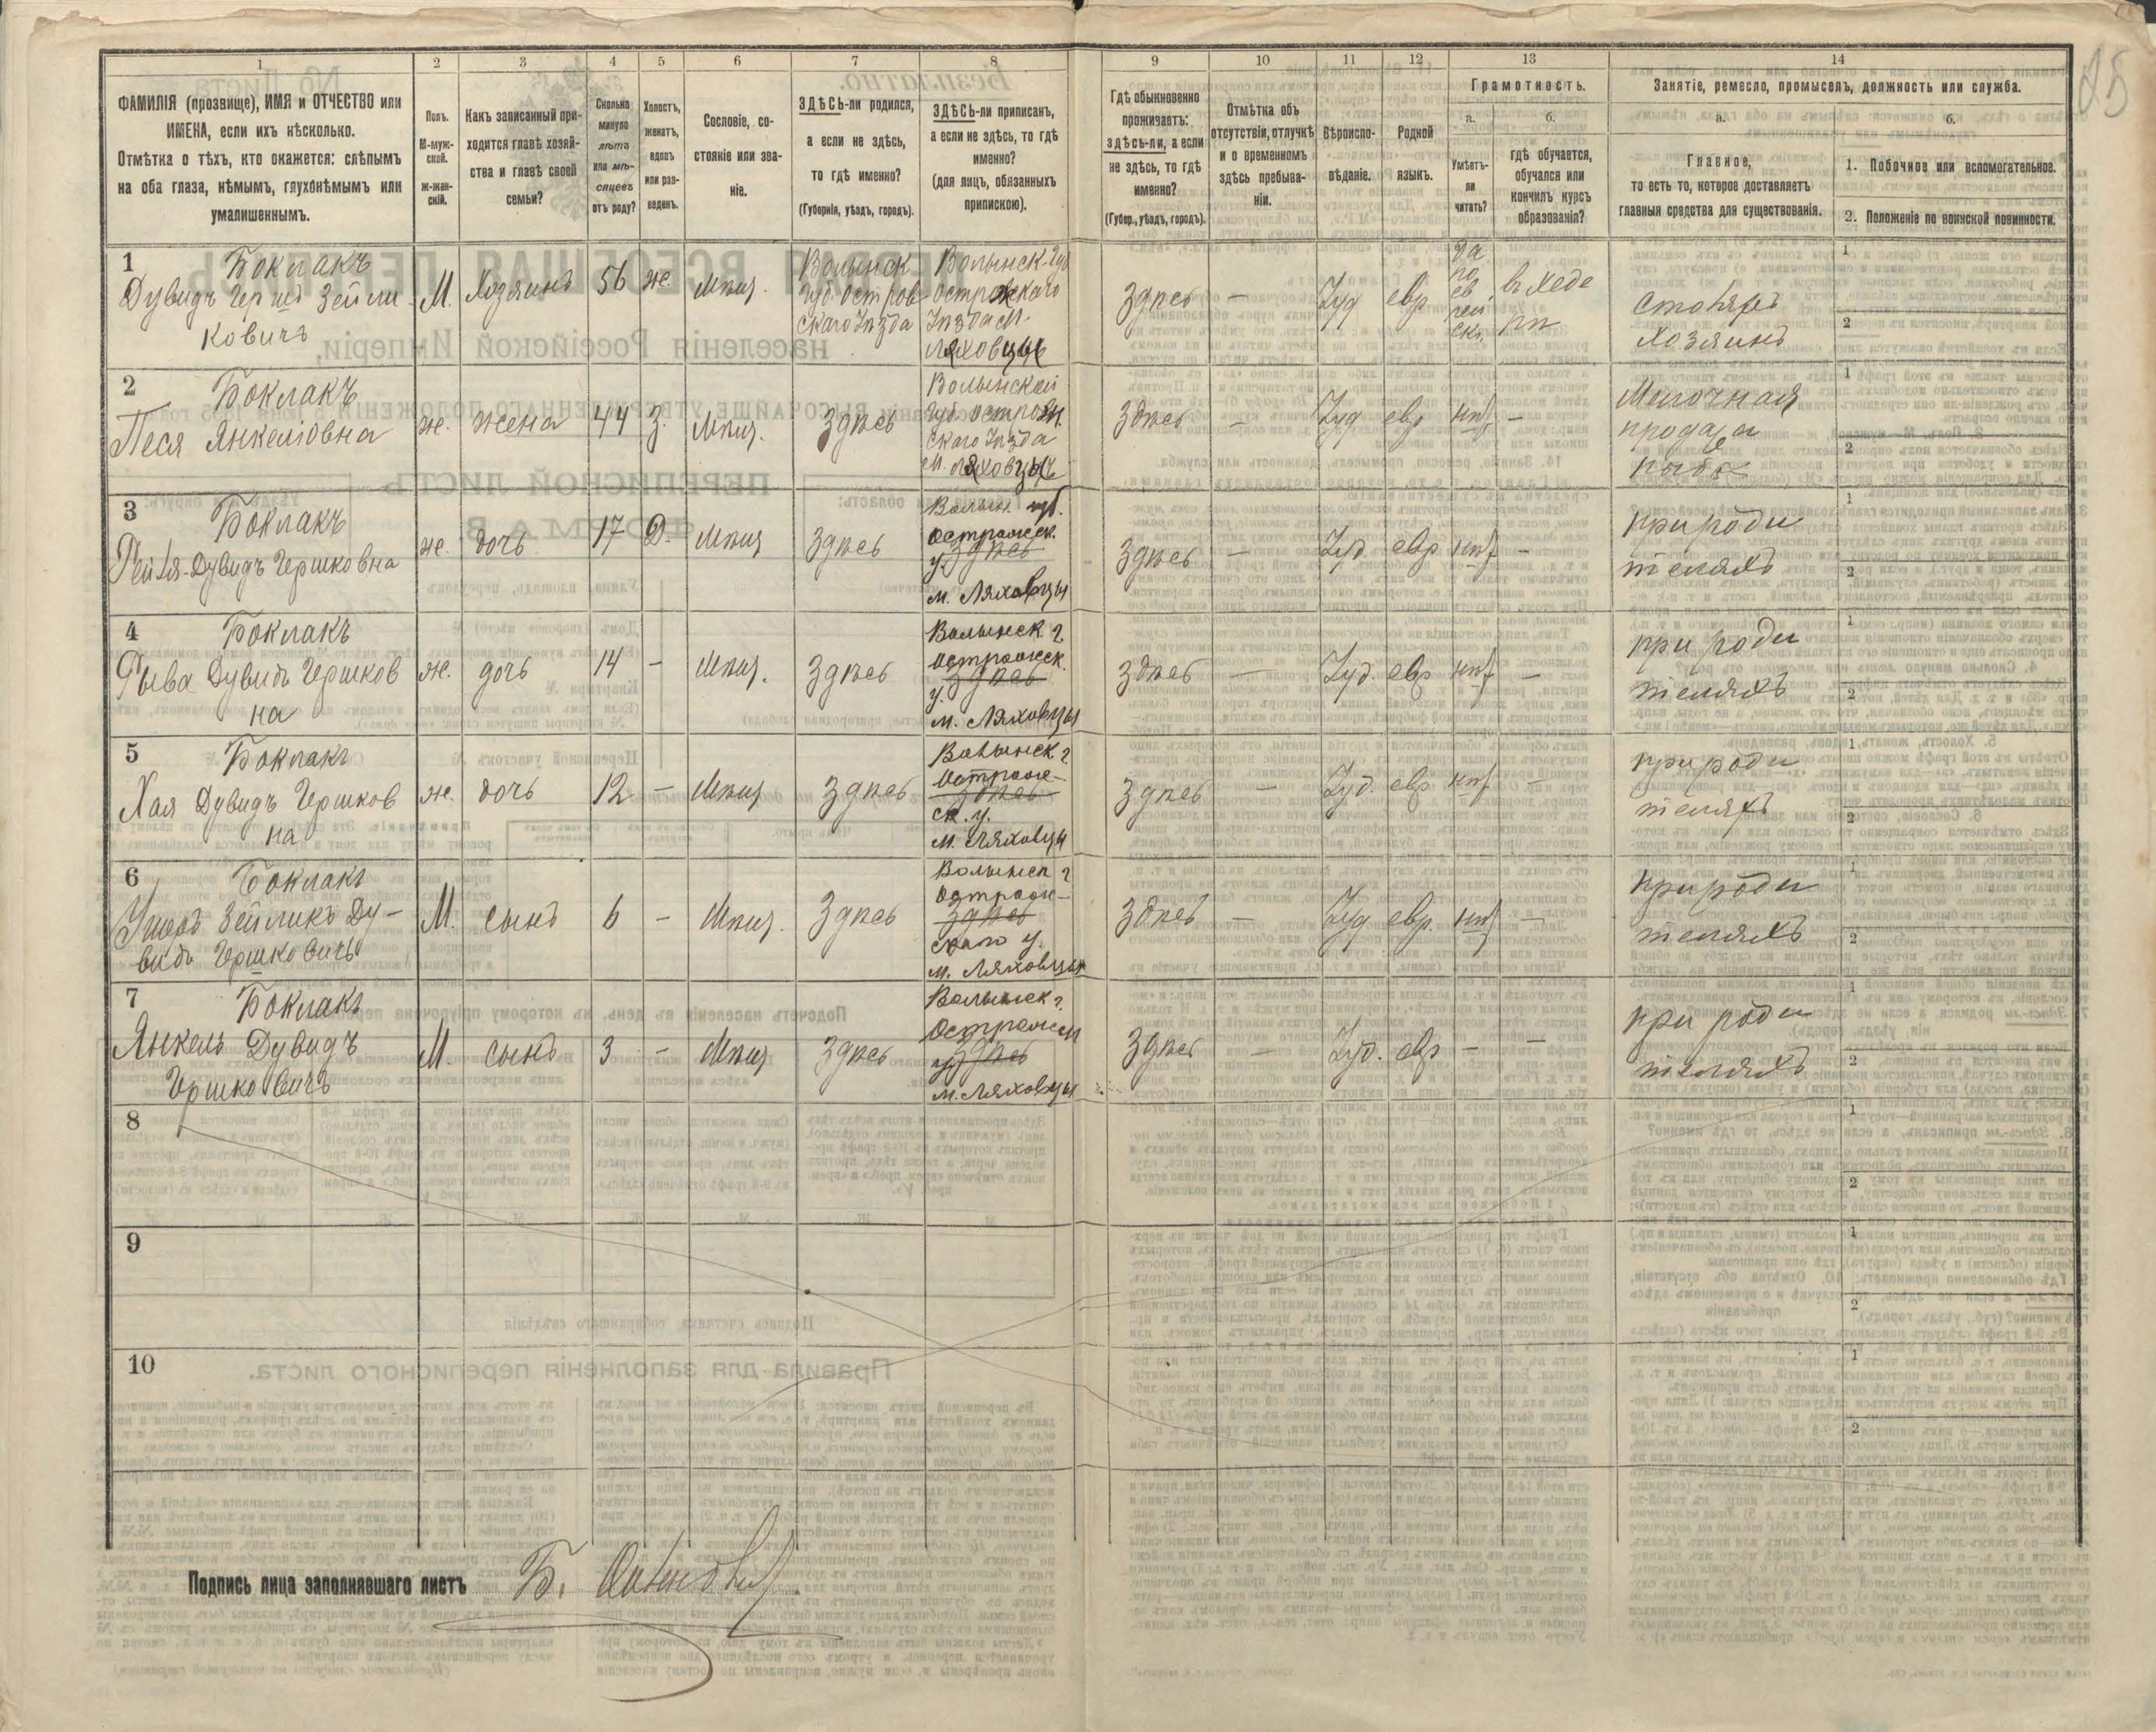 85
1
2
3
4
5
6
7
8
9
10
11
12
13
14
ФАМИЛІЯ (прозвище), ИМЯ и ОТЧЕСТВО или
ИМЕНА, если ихъ нѣсколько.
Отмѣтка о тѣхъ, кто окажется: слѣпымъ
на оба глаза, нѣмымъ, глухонѣмымъ или
умалишеннымъ.
Полъ.
М-муж-
ской.
Ж-жен-
скій.
Какъ записанный при-
ходится главѣ хозяй-
ства и главѣ своей
семьи?
Сколько
минуло
лѣтъ
или мѣ-
сяцевъ
отъ роду?
Холостъ,
женатъ,
вдовъ
или раз-
веденъ.
Сословіе, со-
стояніе или зва-
ніе.
ЗДѢСЬ-ли родился,
а если не здѣсь,
то гдѣ именно?
(Губернія, уѣздъ, городъ).
ЗДѢСЬ-ли приписанъ,
а если не здѣсь, то гдѣ
именно?
(для лицъ, обязанныхъ
припискою).
Гдѣ обыкновенно
проживаетъ:
здѣсь-ли, а если
не здѣсь, то гдѣ
именно?
(Губер., уѣздъ, городъ).
Отмѣтка объ
отсутствіи, отлучкѣ
и о временномъ
здѣсь пребыва-
ніи.
Вѣроиспо-
вѣданіе.
Родной
языкъ.
Грамотность.
а.
Умѣетъ-
ли
читать?
б.
гдѣ обучается,
обучался или
кончилъ курсъ
образованія?
Занятіе, ремесло, промыселъ, должность или служба.
а.
Главное,
то есть то, которое доставляетъ
главныя средства для существованія.
б.
1. Побочное или вспомогательное.
2. Положеніе по воинской повинности.
1
Боклакъ
Дувидъ Герш Зейли
ковичъ
М.
Хозяинъ
56
же.
Мѣщ.
Волынск
губ. Остров
скаго Уѣзда
Волынск. Губ
Острожскаго
Уѣзда М.
Ляховцы
Здѣсь
—
Іуд
евр
да
по
ев
рей
ски
въ Хеде
рѣ
столяръ
Хозяинъ
1
2
2
Боклакъ
Песя Янкелiовна
ж.
жена
44
З.
Мѣщ.
Здѣсь
Волынской
губ. Острож.
скаго Уѣзда
м. Ляховцы
Здѣсь
—
Іуд
евр
нѣт
—
Мелочная
продажа
рыбы
1
2
3
Боклакъ
Рейзя-Дувидъ Гершковна
ж.
дочь
17
Д.
Мѣщ
Здѣсь
Волын. губ.
Острожск.
у. Здѣсь
м. Ляховцы
Здѣсь
—
Іуд.
евр
нѣт
—
при роди
теляхъ
1
2
4
Боклакъ
Рыва Дувидъ Гершков
на
ж.
дочь
14
—
Мѣщ.
Здѣсь
Волынск г.
Острожск.
Здѣсь
у.
м. Ляховцы
Здѣсь
—
Іуд.
евр
нѣт
—
при роди
теляхъ
1
2
5
Боклакъ
Хая Дувидъ Гершков
на
ж.
дочь
12
—
Мѣщ
Здѣсь
Волынск г.
Острож-
Здѣсь
ск. у.
м. Ляховцы
Здѣсь
—
Іуд.
евр
нѣт
—
при роди
теляхъ
1
2
6
Боклакъ
Ушеръ Зейликъ Ду-
видъ Гершковичъ
М.
сынъ
6
—
Мѣщ.
Здѣсь
Волынск г
Острож-
Здѣсь
скаго у.
м. Ляховцы
Здѣсь
—
Іуд
евр.
нѣт
—
при роди
теляхъ
1
2
7
Боклакъ
Янкель Дувидъ
Гершковичъ
М.
сынъ
3
—
Мѣщ
Здѣсь
Волынск г.
Острожск
у. Здѣсь
м. Ляховцы
Здѣсь
—
Іуд.
евр
—
—
при роди
теляхъ
1
2
8
1
2
9
1
2
10
1
2
Подпись лица заполнявшаго листъ
Б.